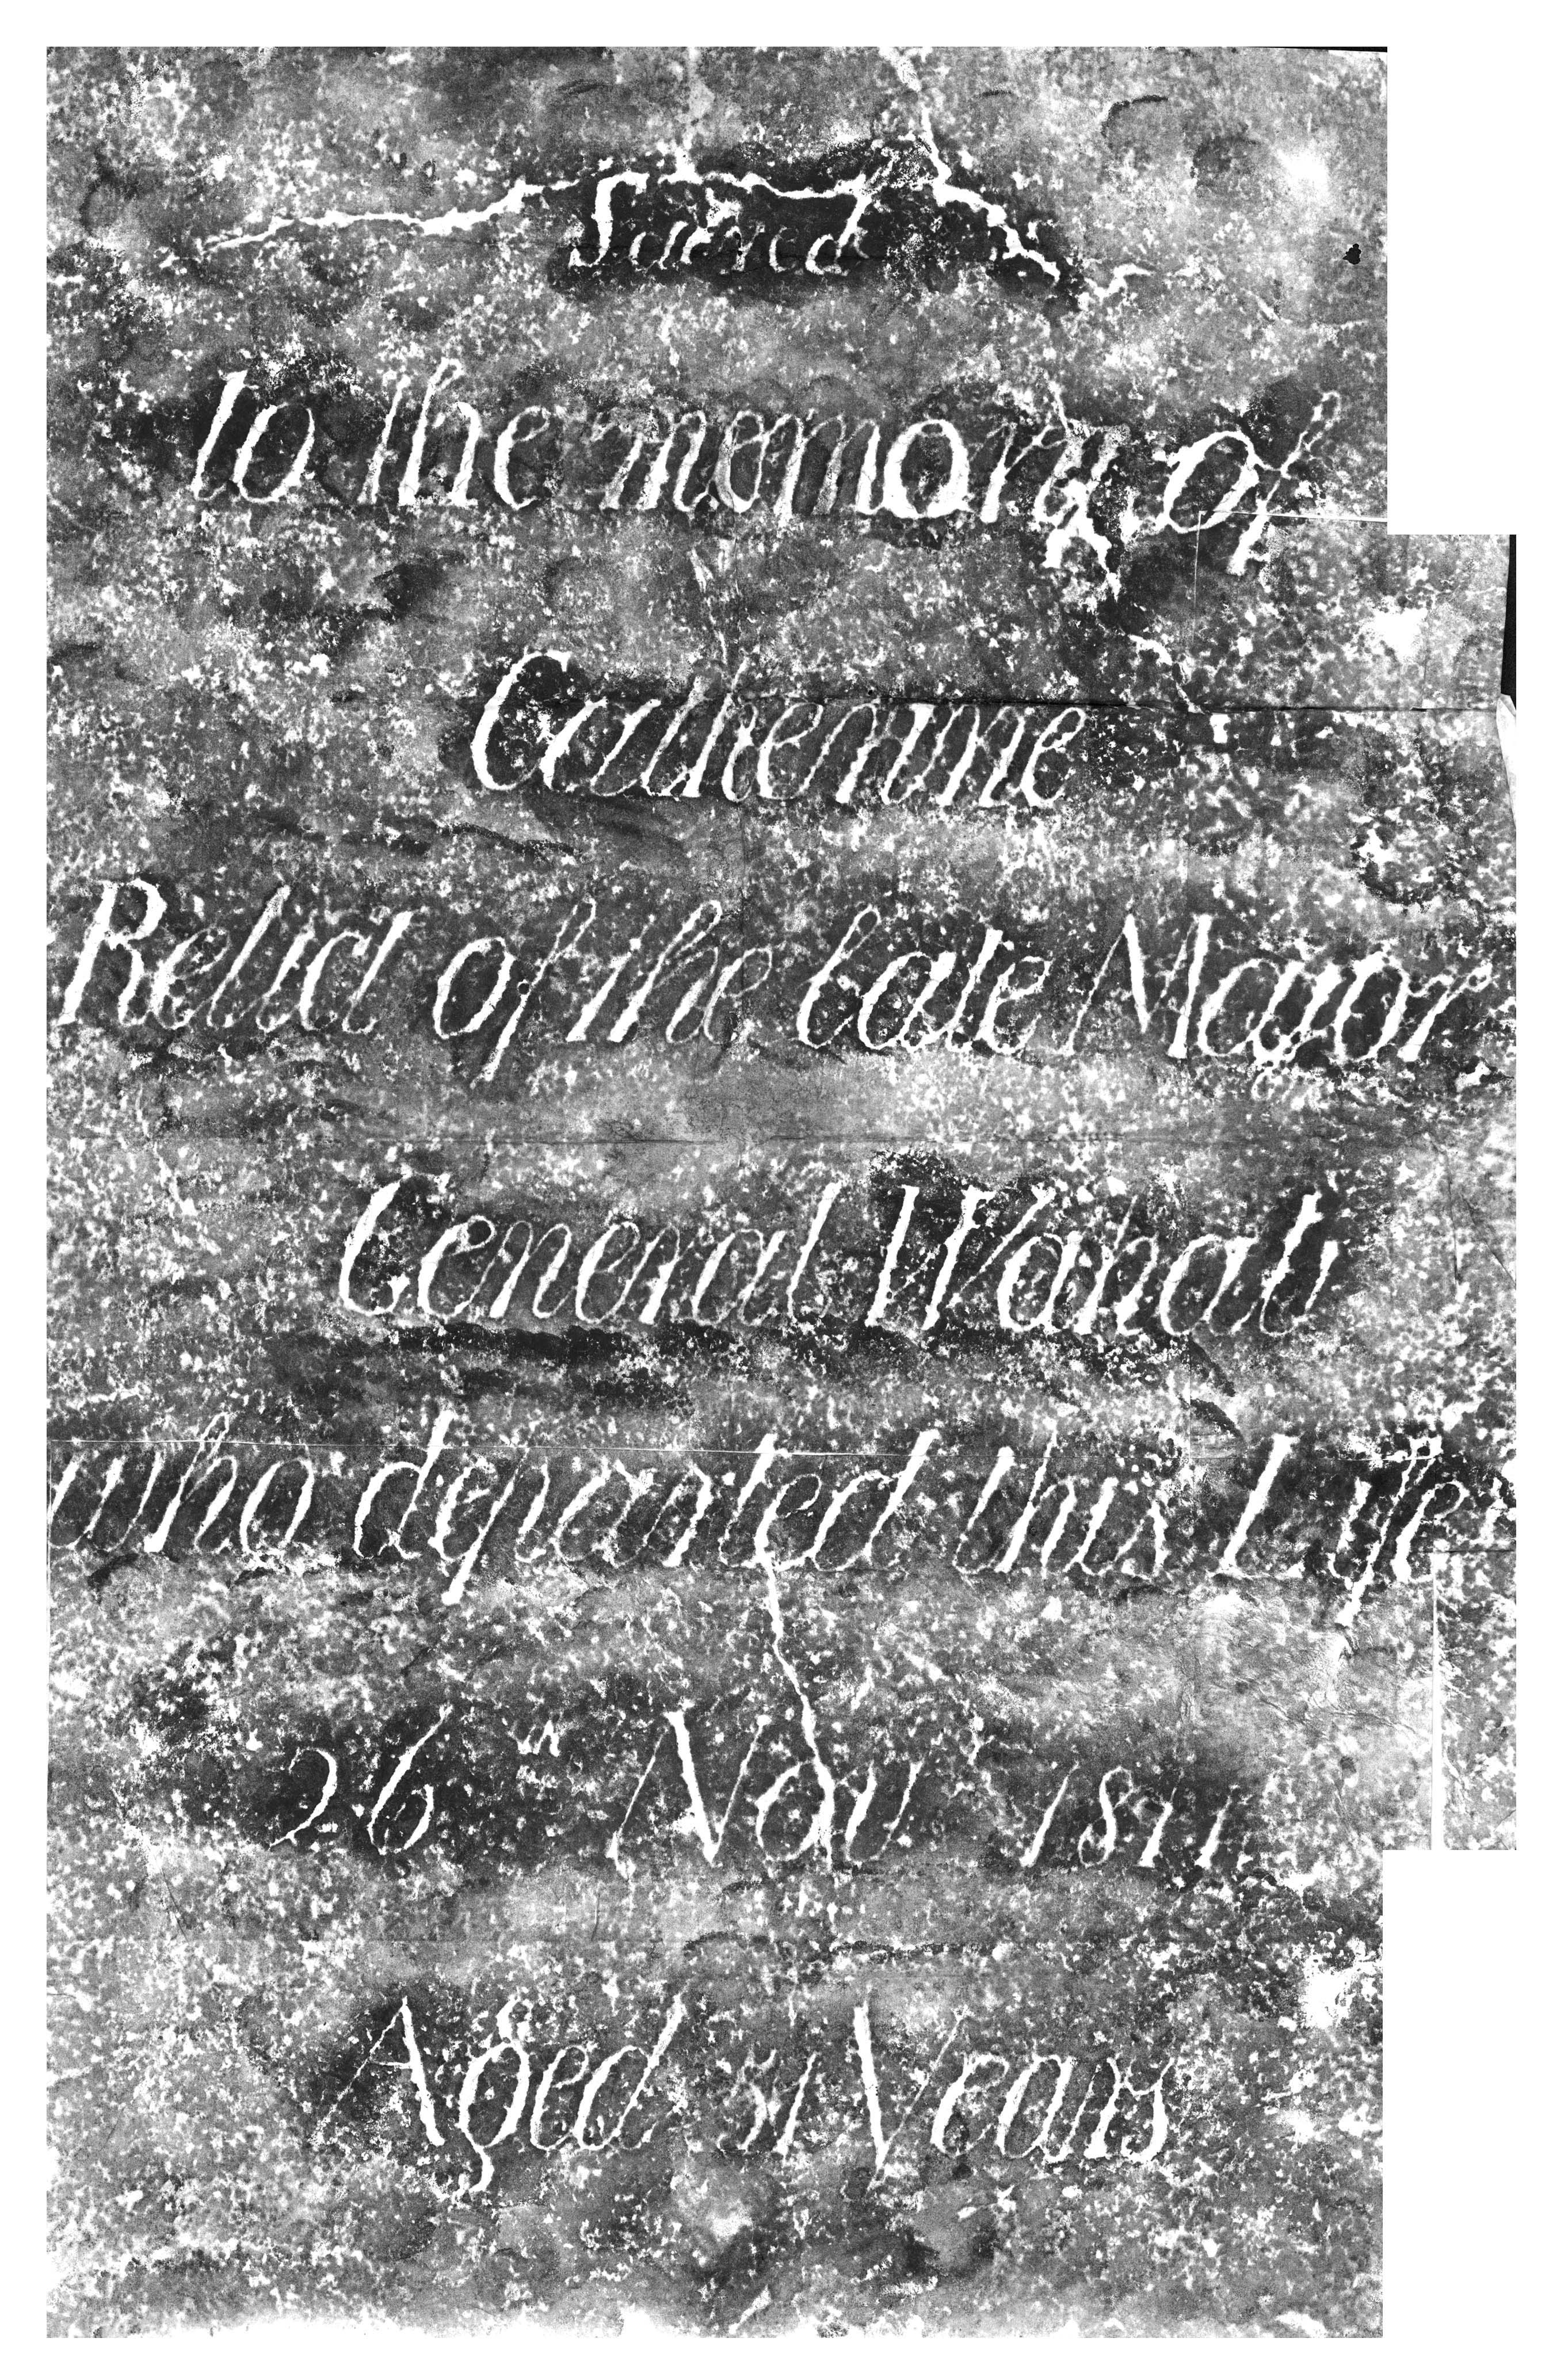 Sacred
to the memory of
Catherine
Relict of the late Mayor
General Wahab
who departed this Life
26th Nov 1811
Aged 51 Years